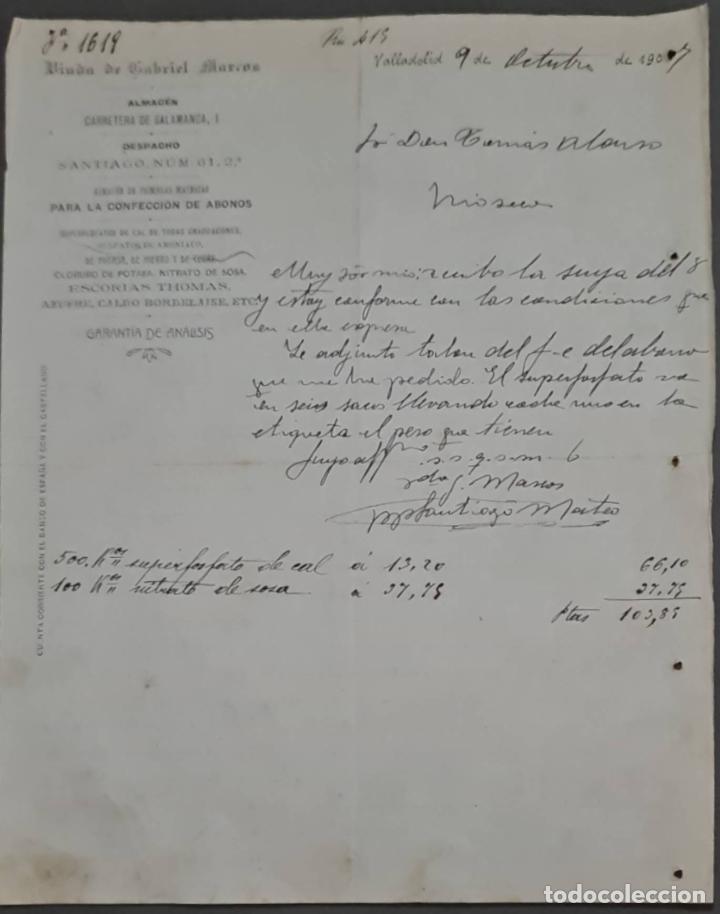 Fª 1619
Viuda de Gabriel Marcos
ALMACÉN
CARRETERA DE SALAMANCA, 1
DESPACHO
SANTIAGO, NÚM 61, 2.º
ALMACÉN DE PRIMERAS MATERIAS
PARA LA CONFECCIÓN DE ABONOS
SUPERFOSFATOS DE CAL DE TODAS GRADUACIONES,
SULFATOS DE AMONIACO,
DE POTASA, DE HIERRO Y DE COBRE
CLORURO DE POTASA, NITRATO DE SOSA,
ESCORIAS THOMAS,
AZUFRE, CALDO BORDELAISE, ETC.
GARANTÍA DE ANÁLISIS
CUENTA CORRIENTE CON EL BANCO DE ESPAÑA Y CON EL CASTELLANO
Valladolid 9 de Octubre de 1907
Sr Don Tomás Alonso
Rioseco
Muy Sor mio: recibo la suya del 8
y estoy conforme con las condiciones que
en ella expresa
Le adjunto talon del f-c del abono
que me ha pedido. El superfosfato va
en seis sacos llevando cada uno en la
etiqueta el peso que tienen
Suyo aff mo s.s.q.s.m.b
Vda G. Marcos
pp Santiago Mateo
500 Kos superfosfato de cal á 13,20 66,10
100 Kos nitrato de sosa á 37,75 37,75
Ptas 103,85
todocoleccion.net